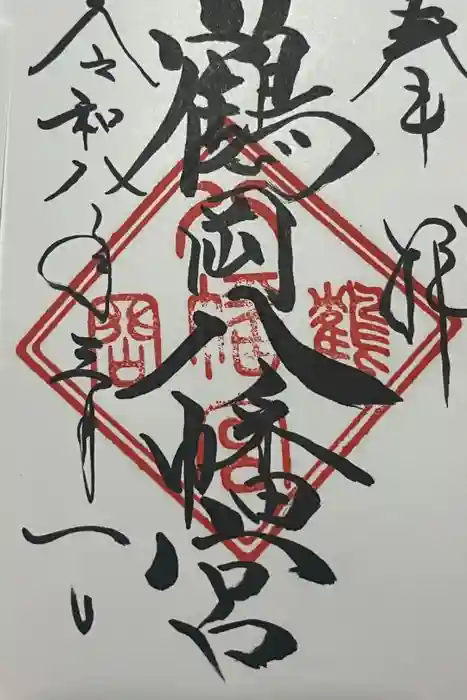 奉拝
鶴岡八幡宮
令和八年三月一日
鶴
岡
八幡
宮